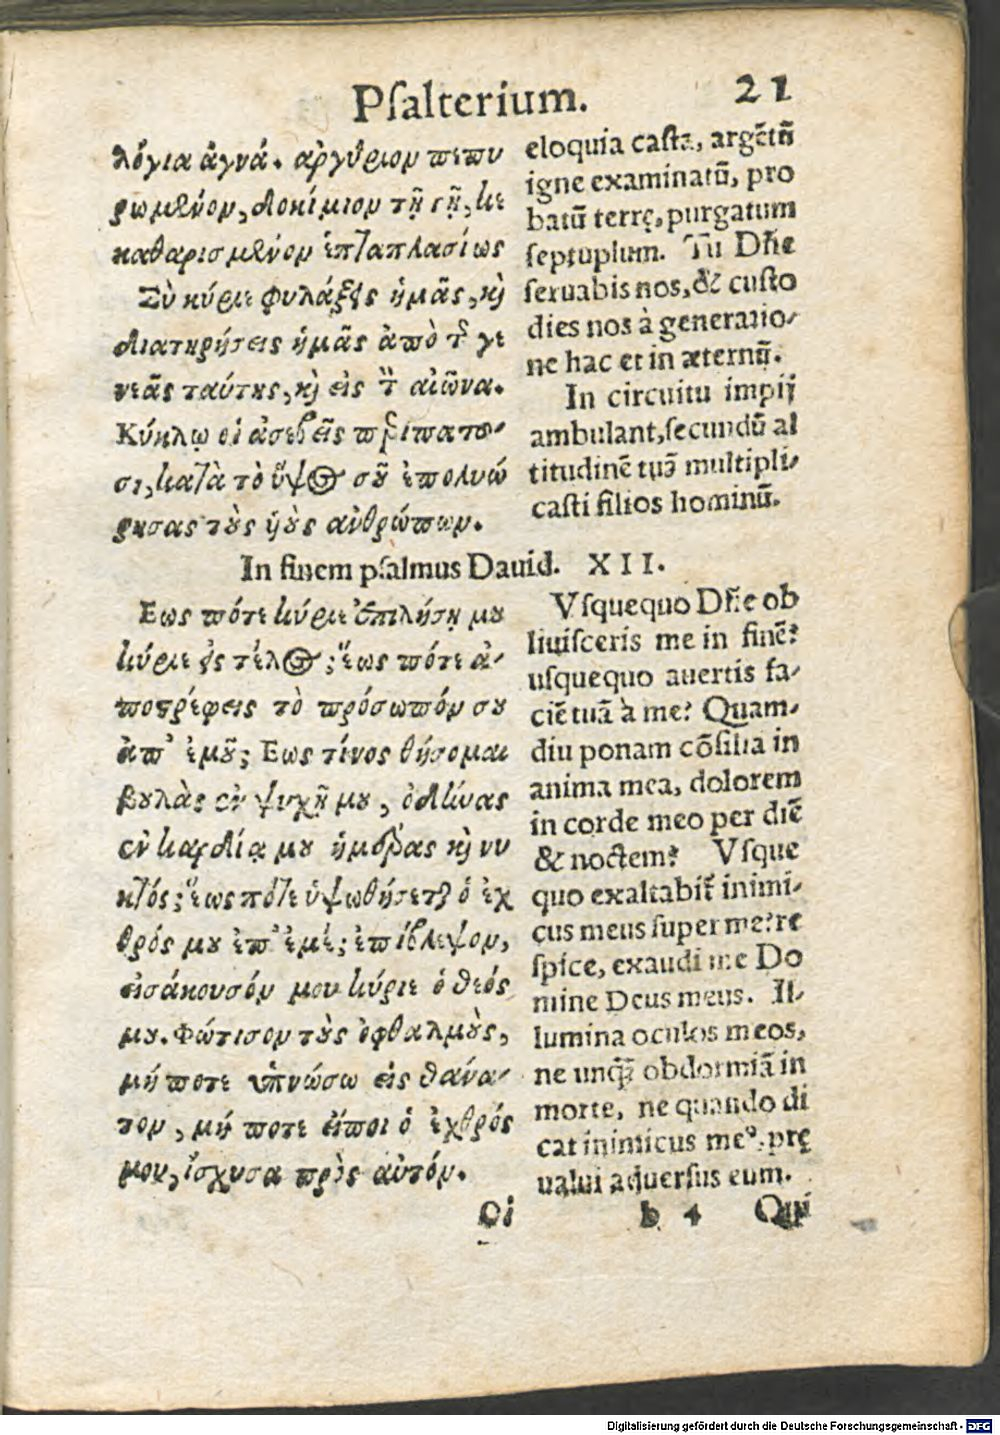 Psalterium. 21
λόγια ἁγνά. ἀργύριον πεπυ
ρωμένον, δοκίμιον τῇ γῇ, κε
καθαρισμένον ἑπταπλασίως
Σὺ κύριε φυλάξεις ἡμᾶς, κὶ
διατηρήσεις ἡμᾶς ἀπὸ τῆς γε
νεᾶς ταύτης, κὶ εἰς τὸν αἰῶνα.
Κύκλῳ οἱ ἀσεβεῖς περιπατοῦ-
σι, κατὰ τὸ ὕψος σοῦ ἐπολυώ
ρησας τοὺς ὑοὺς ἀνθρώπων.
eloquia casta, argētū
igne examinatū, pro
batū terrę, purgatum
septuplum. Tu Dn̄e
seruabis nos, & custo
dies nos à generatio-
ne hac et in æternū.
In circuitu impij
ambulant, secundū al
titudinē tuā multipli-
casti filios hominū.
In finem psalmus Dauid. XII.
Εως πότε κύριε ἐπιλήσῃ μου
κύριε εἰς τέλος; ἕως πότε ἀ-
ποστρέφεις τὸ πρόσωπόν σου
ἀπ' ἐμοῦ; Εως τίνος θήσομαι
βουλὰς ἐν ψυχῇ μου, ὀδύνας
ἐν καρδίᾳ μου ἡμέρας κὶ νυ
κτός; ἕως πότε ὑψωθήσεται ὁ ἐχ
θρός μου ἐπ' ἐμέ; ἐπίβλεψον,
εἰσάκουσόν μου κύριε ὁ θεός
μου. Φώτισον τοὺς ὀφθαλμοὺς,
μή ποτε ὑπνώσω εἰς θάνα-
τον, μή ποτε εἴποι ὁ ἐχθρός
μου, ἴσχυσα πρὸς αὐτόν.
Οἱ
Vsquequo Dn̄e ob
liuisceris me in finē?
usquequo auertis fa-
ciē tuā à me? Quam-
diu ponam cōsilia in
anima mea, dolorem
in corde meo per diē
& noctem? Vsque
quo exaltabit̃ inimi-
cus meus super me? re
spice, exaudi me Do
mine Deus meus. Il-
lumina oculos meos,
ne unq̃ obdormiā in
morte, ne quando di
cat inimicus meꝰ. prę
ualui aduersus eum.
b 4 Qui
Digitalisierung gefördert durch die Deutsche Forschungsgemeinschaft - DFG